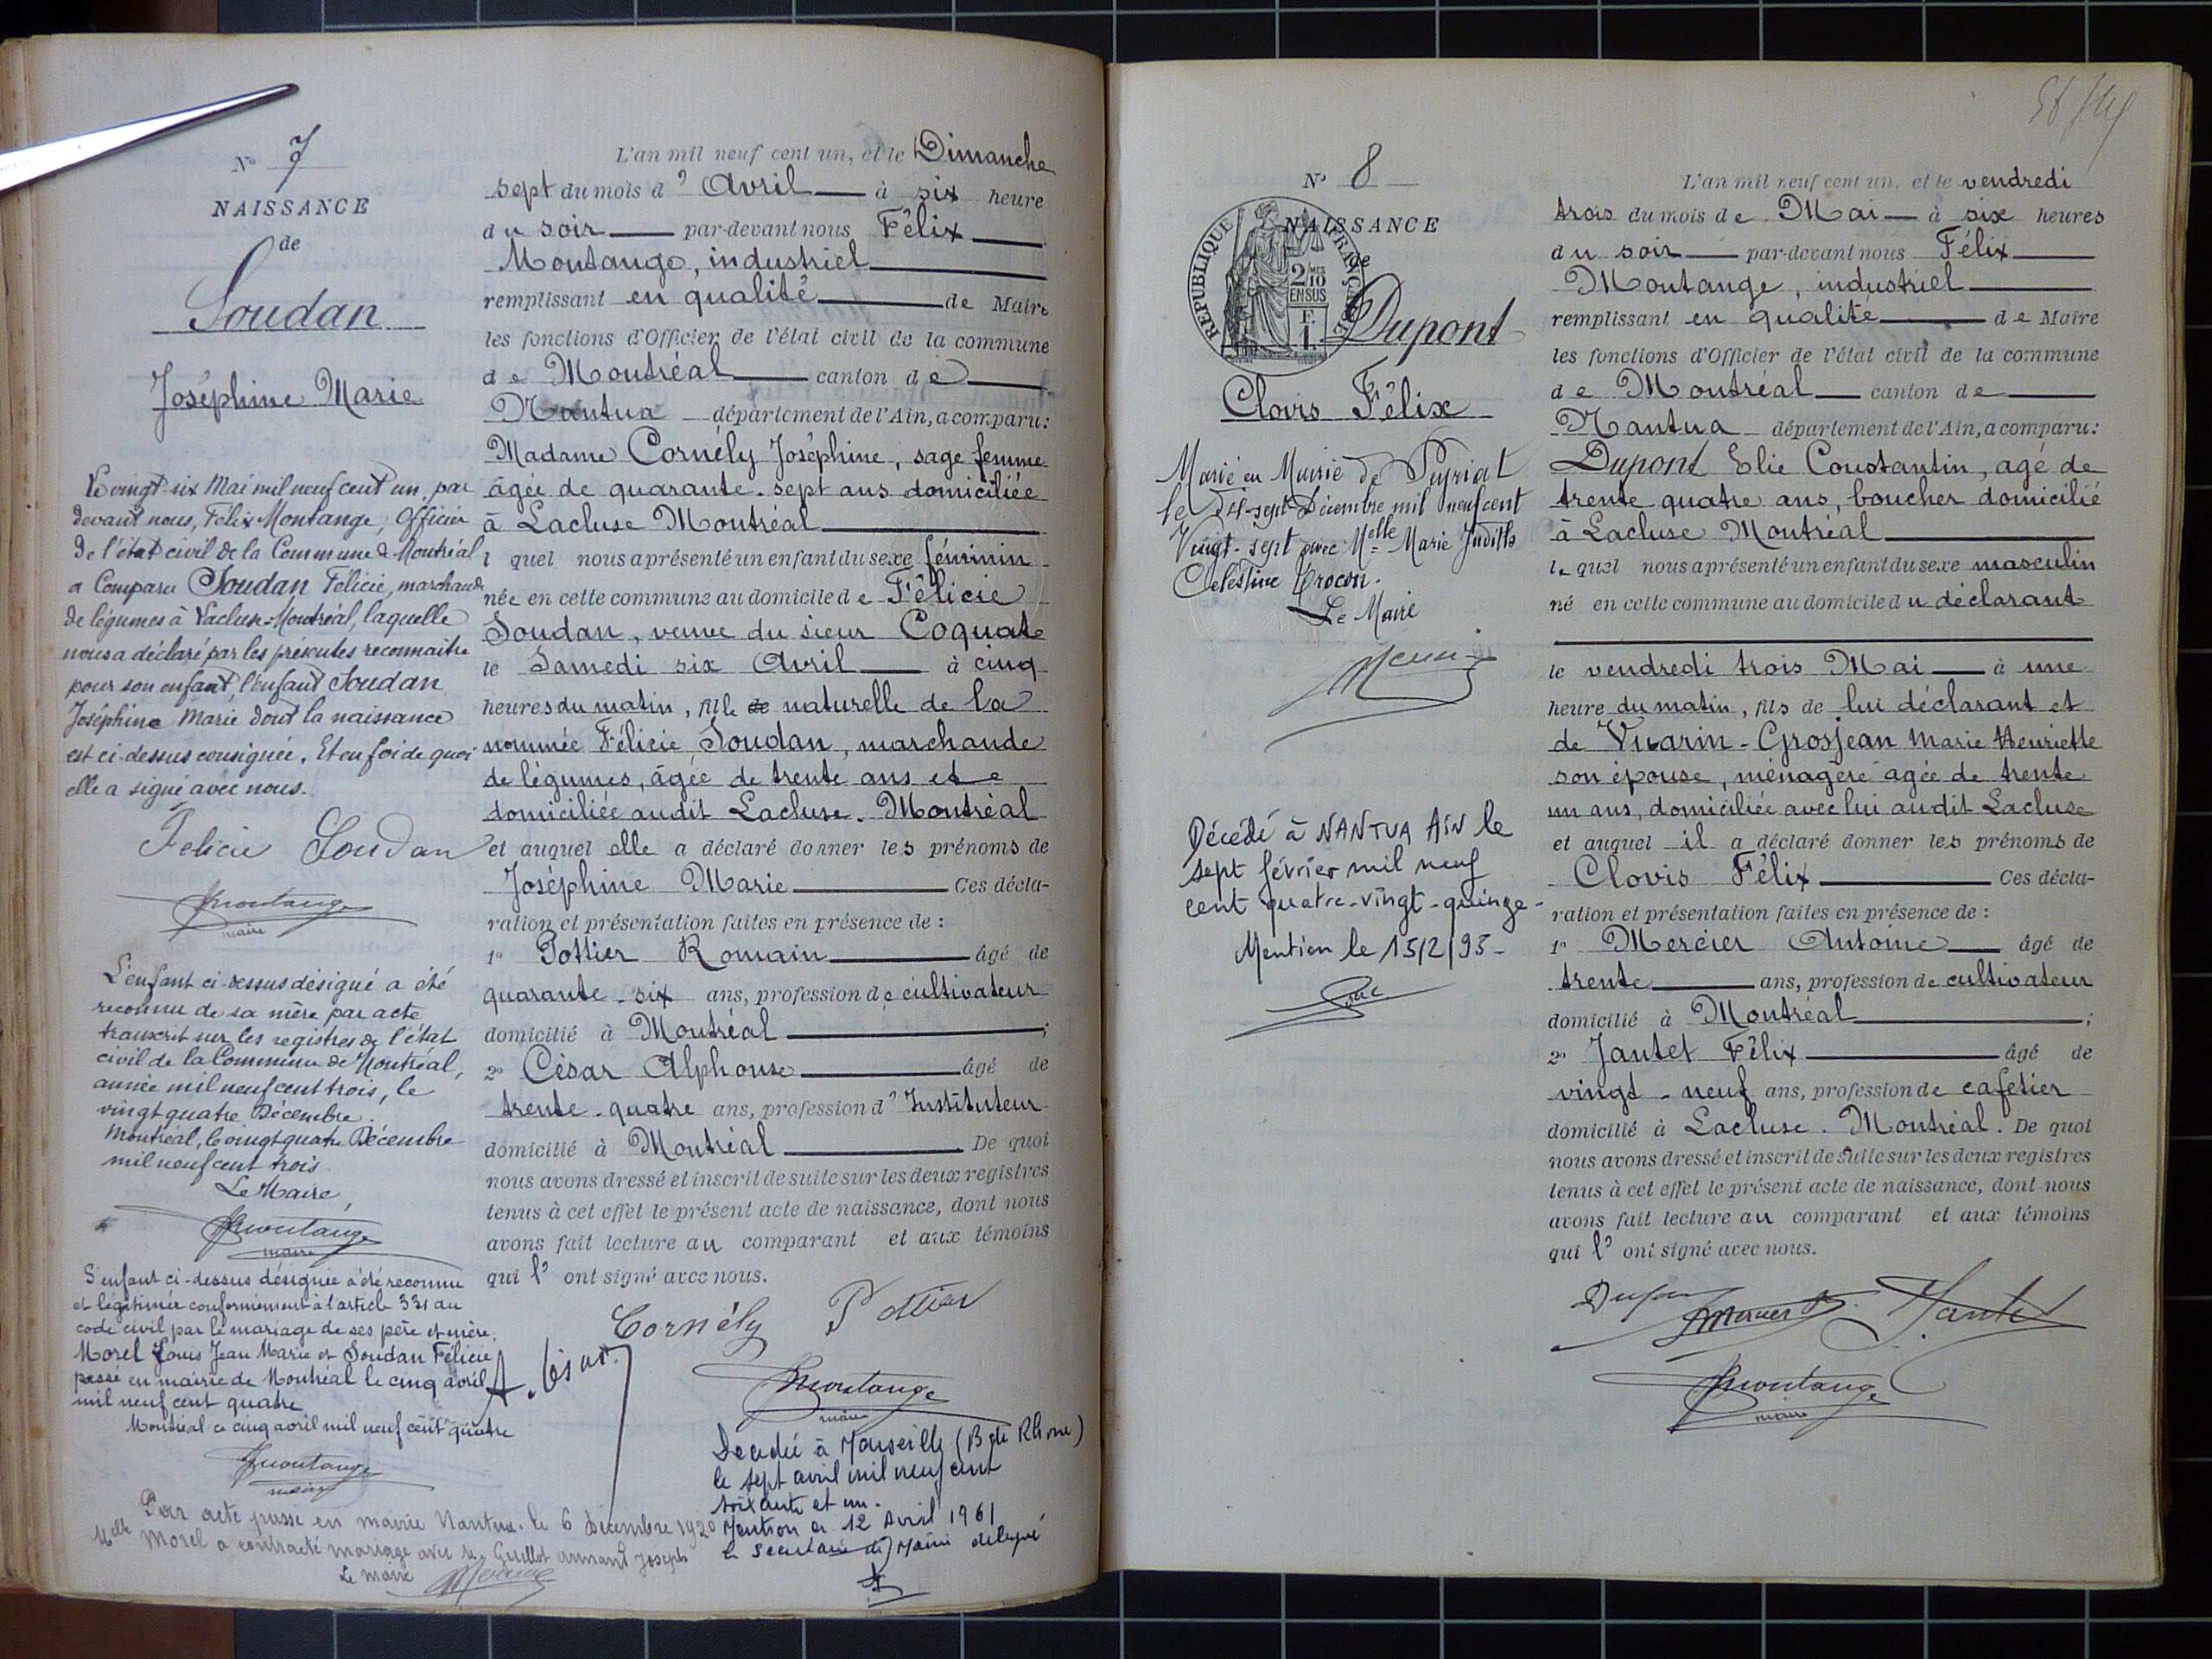 N° 7
NAISSANCE
de
Soudan
Joséphine Marie
Le vingt-six Mai mil neuf cent un, par
devant nous, Félix Montange, Officier
de l'état civil de la Commune de Montréal
a Comparu Soudan Félicie, marchande
de légumes à Lacluse-Montréal, laquelle
nous a déclaré par les présentes reconnaitre
pour son enfant, l'enfant Soudan
Joséphine Marie dont la naissance
est ci-dessus consignée. Et en foi de quoi
elle a signé avec nous.
Felicie Soudan
Fmontange
maire
L'enfant ci-dessus désigné a été
reconnu de sa mère par acte
transcrit sur les registres de l'état
civil de la Commune de Montréal,
année mil neuf cent trois, le
vingt quatre Décembre.
Montréal, le vingt quatre Décembre
mil neuf cent trois.
Le Maire,
Fmontange
maire
L'enfant ci-dessus désignée a été reconnue
et légitimée conformément à l'article 331 du
code civil par le mariage de ses père et mère,
Morel Louis Jean Marie et Soudan Félicie
passé en mairie de Montréal le cinq avril
mil neuf cent quatre
Montréal ce cinq avril mil neuf cent quatre
Fmontange
maire
Par acte passé en mairie Nantua. le 6 décembre 1920
Melle Morel a contracté mariage avec Mr. Guillot Armand Joseph
Le maire
L'an mil neuf cent un, et le Dimanche
sept du mois d' Avril à six heure
du soir par-devant nous Félix
Montange, industriel
remplissant en qualité de Maire
les fonctions d'Officier de l'état civil de la commune
de Montréal canton de
Nantua département de l'Ain, a comparu:
Madame Cornély Joséphine, sage femme
âgée de quarante-sept ans domiciliée
à Lacluse Montréal
l quel nous a présenté un enfant du sexe féminin
née en cette commune au domicile de Félicie
Soudan, veuve du sieur Coquate
le Samedi six Avril à cinq
heures du matin, fille de naturelle de la
nommée Félicie Soudan, marchande
de légumes, âgée de trente ans et
domiciliée audit Lacluse. Montréal
et auquel elle a déclaré donner les prénoms de
Joséphine Marie Ces décla-
ration et présentation faites en présence de :
1° Pottier Romain âgé de
quarante-six ans, profession de cultivateur
domicilié à Montréal ;
2° César Alphonse âgé de
trente-quatre ans, profession d' Instituteur
domicilié à Montréal De quoi
nous avons dressé et inscrit de suite sur les deux registres
tenus à cet effet le présent acte de naissance, dont nous
avons fait lecture au comparant et aux témoins
qui l' ont signé avec nous.
Cornély Pottier
A. César
Fmontange
maire
Decedée à Marseille (B du Rhône)
le sept avril mil neuf cent
soixante et un.
Mention le 12 Avril 1961
le secrétaire de Mairie délégué
N° 8
NAISSANCE
de
RÉPUBLIQUE FRANÇAISE
2/10 MES
EN SUS
F.
1.
Dupont
Clovis Félix
Marié en Mairie de Peyriat
le Dix-sept Décembre mil neuf cent
Vingt-sept avec Melle Marie Judith
Célestine Crocon.
Le Maire
Décédé à NANTUA AIN le
sept février mil neuf
cent quatre-vingt-quinze-
Mention le 15/2/95-
L'an mil neuf cent un, et le vendredi
trois du mois de Mai à six heures
du soir par-devant nous Félix
Montange, industriel
remplissant en qualité de Maire
les fonctions d'Officier de l'état civil de la commune
de Montréal canton de
Nantua département de l'Ain, a comparu:
Dupont Elie Constantin, agé de
trente quatre ans, boucher domicilié
à Lacluse Montréal
lequel nous a présenté un enfant du sexe masculin
né en cette commune au domicile du déclarant
le vendredi trois Mai à une
heure du matin, fils de lui déclarant et
de Vuarin-Grosjean Marie Henriette
son épouse, ménagère agée de trente
un ans, domiciliée avec lui audit Lacluse
et auquel il a déclaré donner les prénoms de
Clovis Félix Ces décla-
ration et présentation faites en présence de :
1° Mercier Antoine âgé de
trente ans, profession de cultivateur
domicilié à Montréal ;
2° Jantet Félix âgé de
vingt-neuf ans, profession de cafetier
domicilié à Lacluse. Montréal. De quoi
nous avons dressé et inscrit de suite sur les deux registres
tenus à cet effet le présent acte de naissance, dont nous
avons fait lecture au comparant et aux témoins
qui l' ont signé avec nous.
Jantet
Fmontange
maire